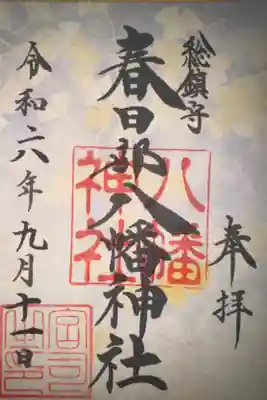 総鎮守
奉拝
春日部八幡神社
八幡神社
令和六年九月十一日
宮司之印